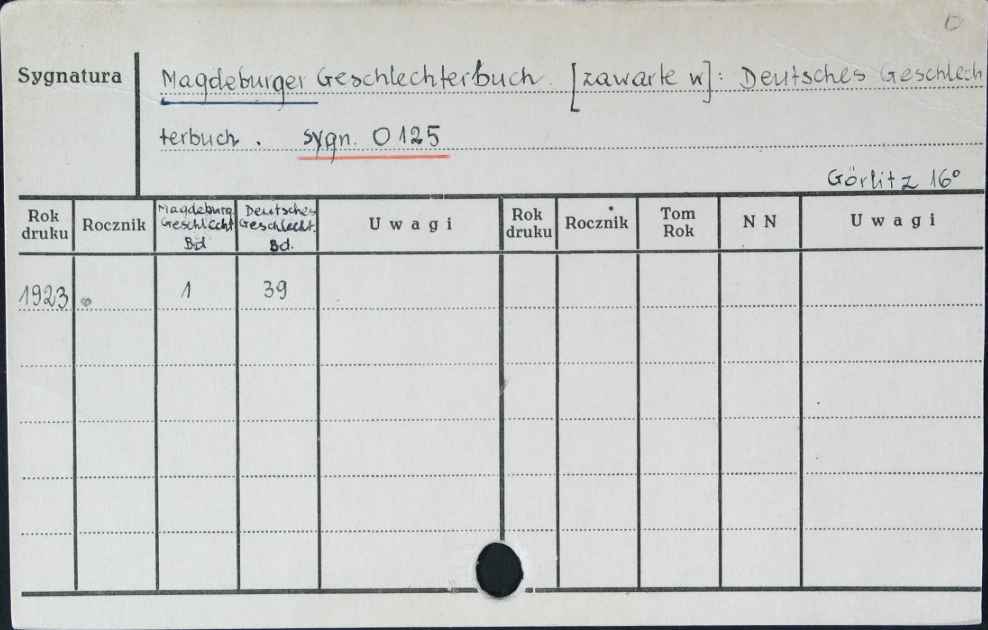 Sygnatura
Magdeburger Geschlechterbuch. [zawarte w]: Deutsches Geschlech
terbuch. sygn. O 125
Görlitz 16°
Rok druku Rocznik Magdeburg. Geschlecht Bd Deutsches Geschlecht. Bd. Uwagi Rok druku Rocznik Tom Rok NN Uwagi
1923 1 39